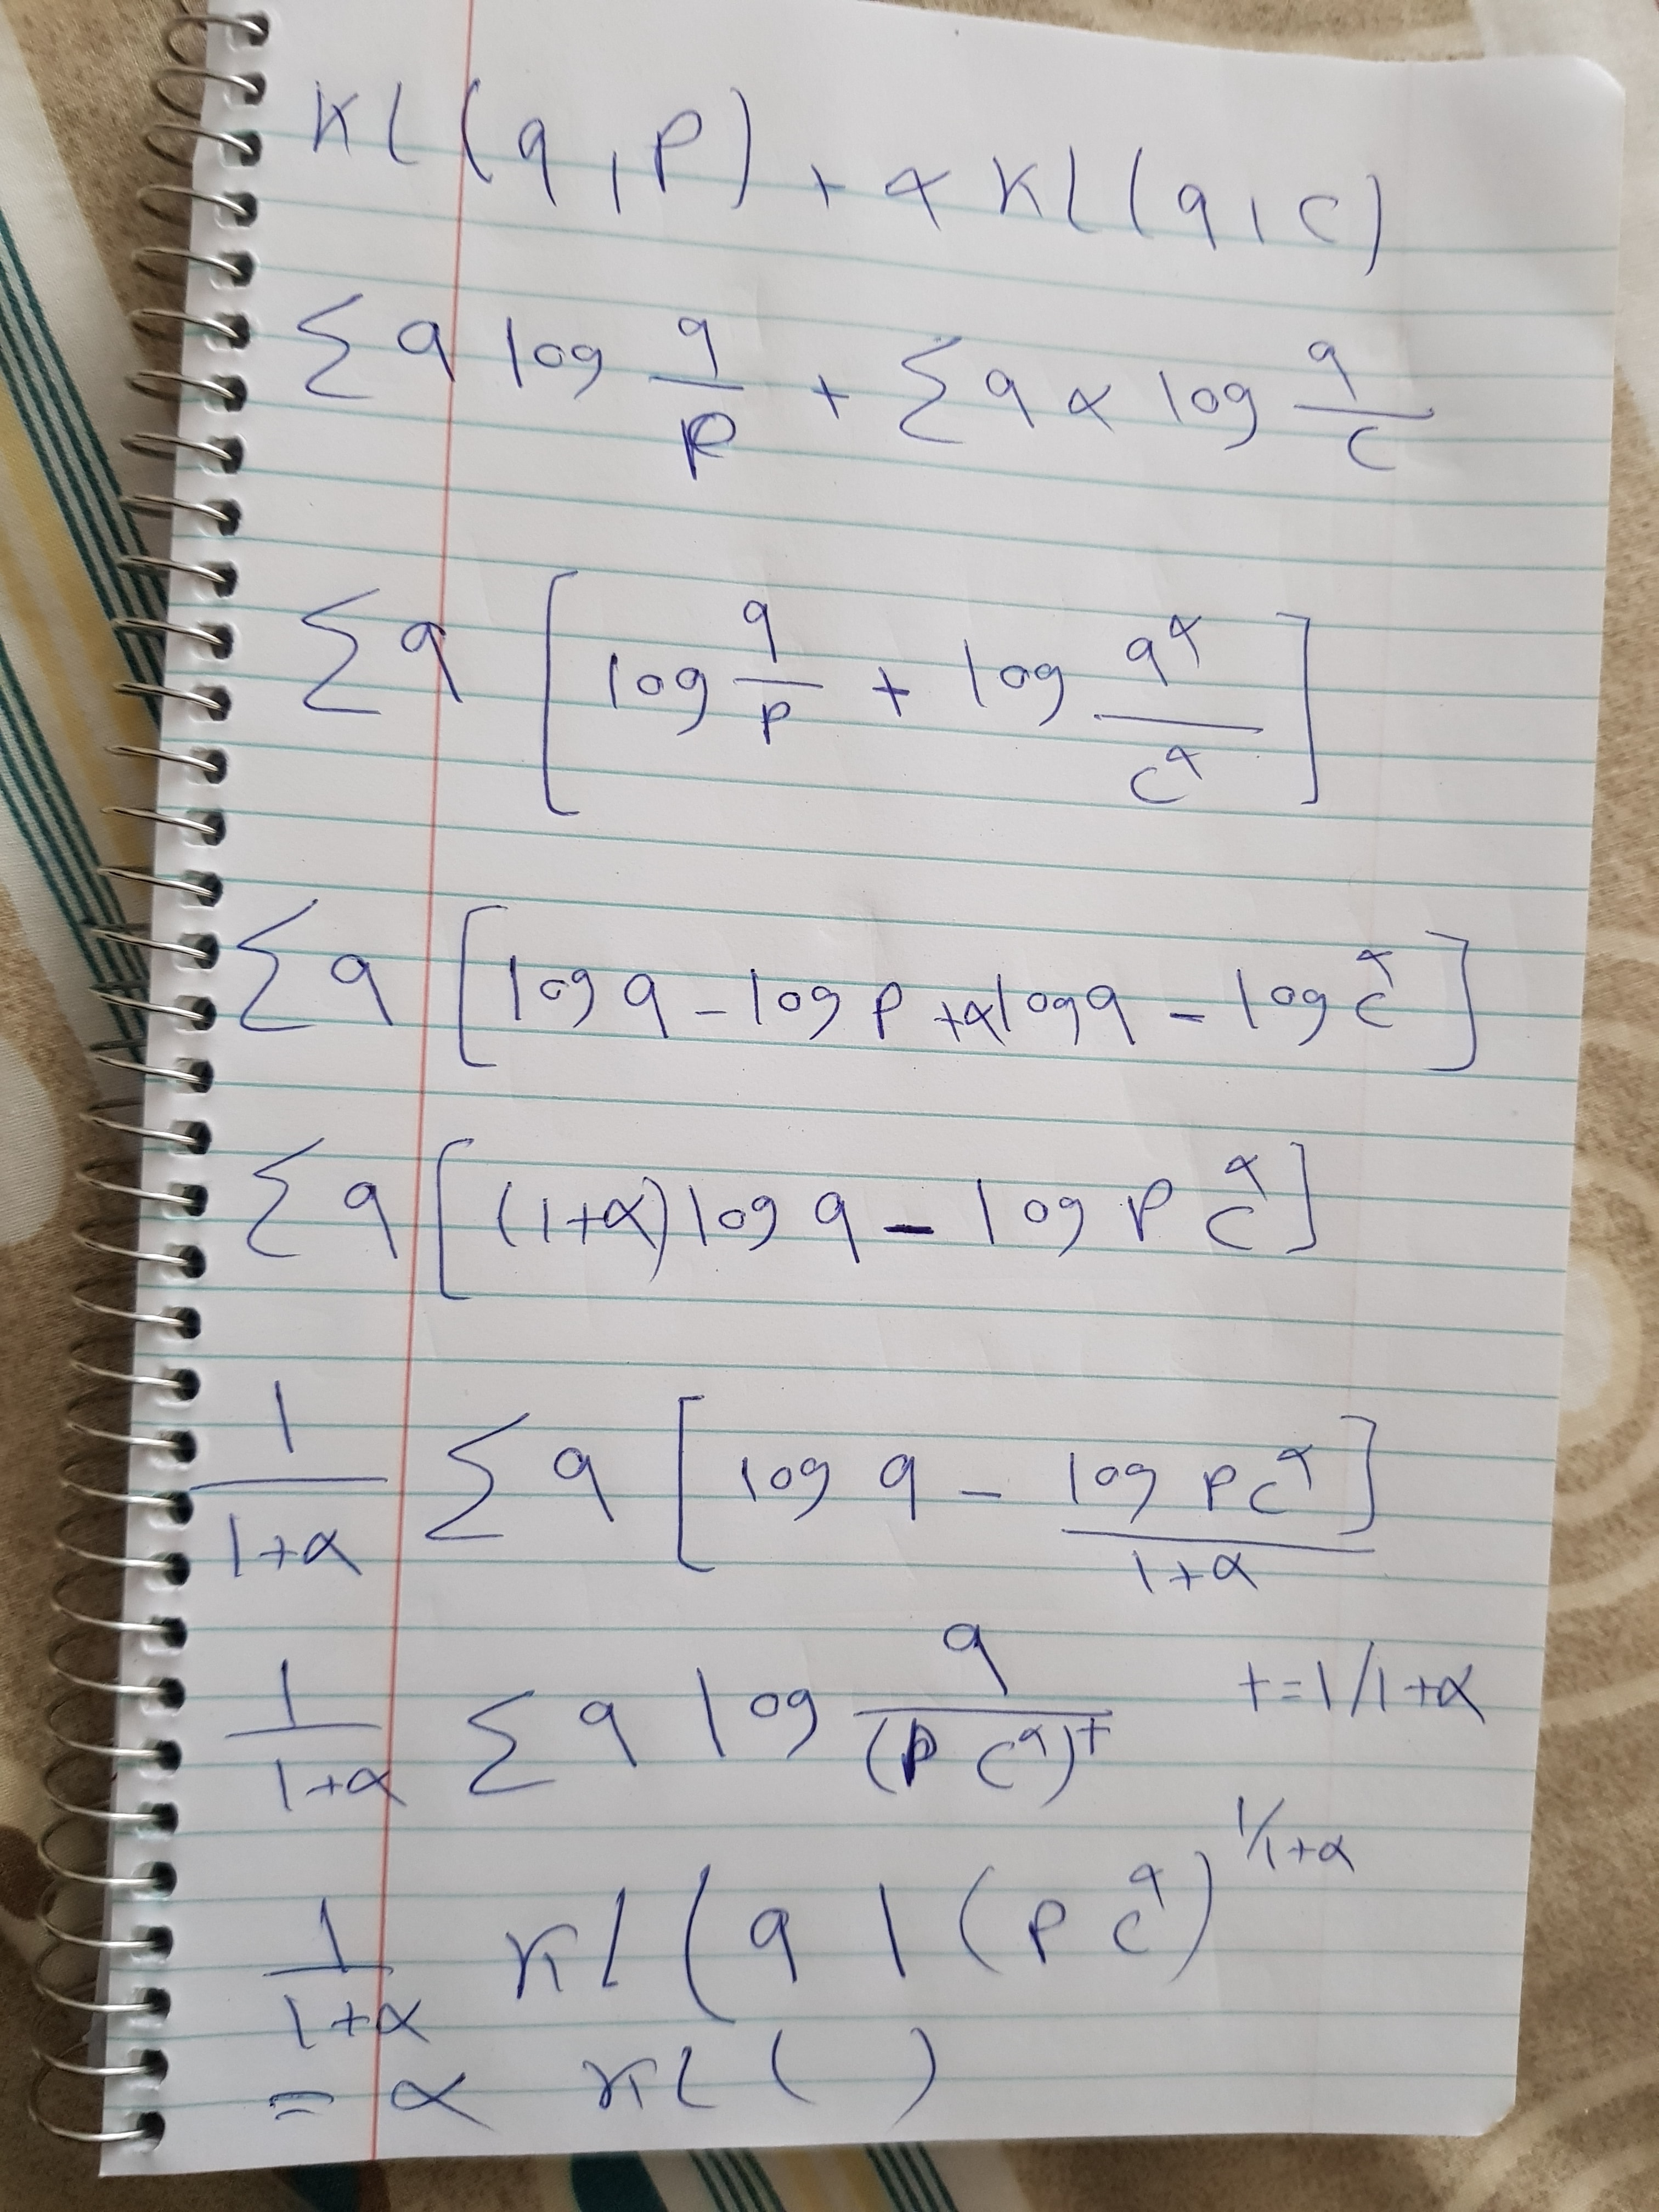 KL(q, p) + α KL(q, c)
Σ q log q/p + Σ q α log q/c
Σ q [log q/p + log q^α/c^α]
Σ q [log q - log p + α log q - log c^α]
Σ q [(1+α) log q - log p c^α]
1/(1+α) Σ q [log q - log p c^α/(1+α)]
1/(1+α) Σ q log q/(p c^α)^t t = 1/1+α
1/(1+α) KL(q | (p c^α)^1/1+α
= α KL( )